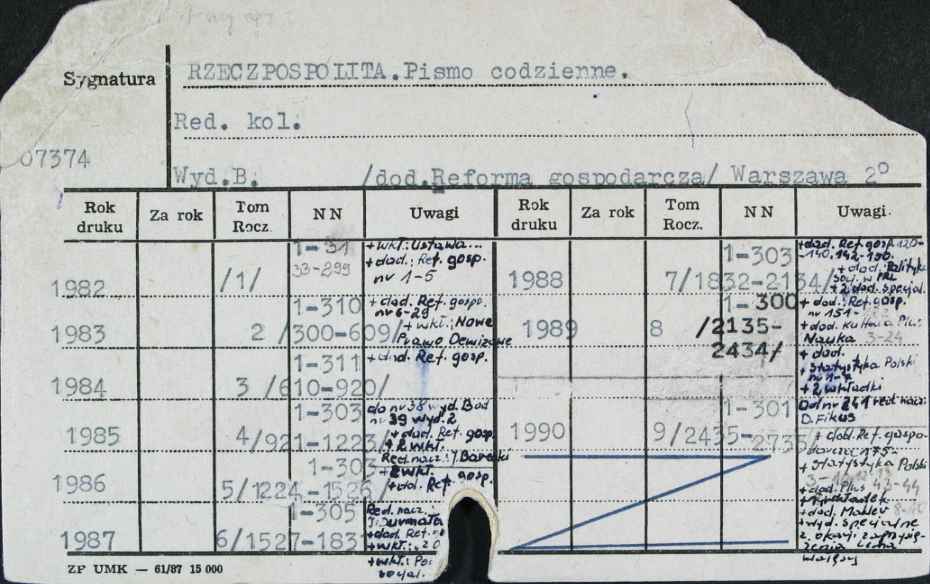 Sygnatura
RZECZPOSPOLITA.Pismo codzienne.
Red. kol.
07374
Wyd.B. /dod.Reforma gospodarcza/ Warszawa 2°
Rok druku Za rok Tom Rocz. NN Uwagi Rok druku Za rok Tom Rocz. NN Uwagi.
1982 /1/ 1-31
33-299
+wkł: Ustawa...
+dod.: Ref. gosp.
nr 1-5
1983 2 /300-609/ 1-310
+ dod. Ref. gosp.
nr 6-29
+ wkł.: Nowe
Prawo Dewizowe
1984 3 /610-920/ 1-311
+ dod. Ref. gosp.
1985 4/921-1223/ 1-303
do nr 38 wyd. B od
nr 39 wyd. 2
+ dod. Ref. gosp.
+ 2 wkł.
1986 5/1224-1526/ 1-303
Red. nacz.: J. Barecki
+ 2 wkł.
+ dod. Ref. gosp.
1987 6/1527-1831 1-305
Red. nacz.:
+dod. Ref.
+wkł.:
+wkł.:
1988 7/1832-2134/ 1-303
+dod. Ref. gosp. 120-
-140, 142-150.
+ dod.: Polityka
w PRL
+ 2 dod. specjal.
1989 8 /2135-
2434/ 1-300
+ dod.: Ref. gosp.
nr 151-
+ dod. Kultura Plus
Nauka 3-24
+ dod.
+ Statystyka Polski
nr 1-
+ 2 wkładki
1990 9/2435-2735/ 1-301
Od nr 241 red. nacz:
D. Fikus
+ dod. Ref. gospo-
darcza 175-
+ Statystyka Polski
+ dod. Plus 43-44
+ dod.
+ wyd. specjalne
z okazji zaprzysię-
żenia Lecha
Wałęsy
ZP UMK — 61/87 15 000